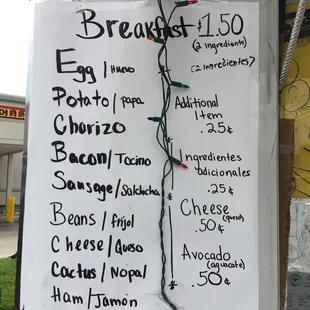 Breakfast $1.50
(2 ingredients)
(2 ingredientes)
Egg / Huevo
Potato / papa
Chorizo
Bacon / Tocino
Sausage / Salchicha
Beans / frijol
Cheese / Queso
Cactus / Nopal
Ham / Jamón
Additional
Item
.25¢
Ingredientes
adicionales
.25¢
* Cheese
(queso)
.50¢
Avocado
(aguacate)
* .50¢